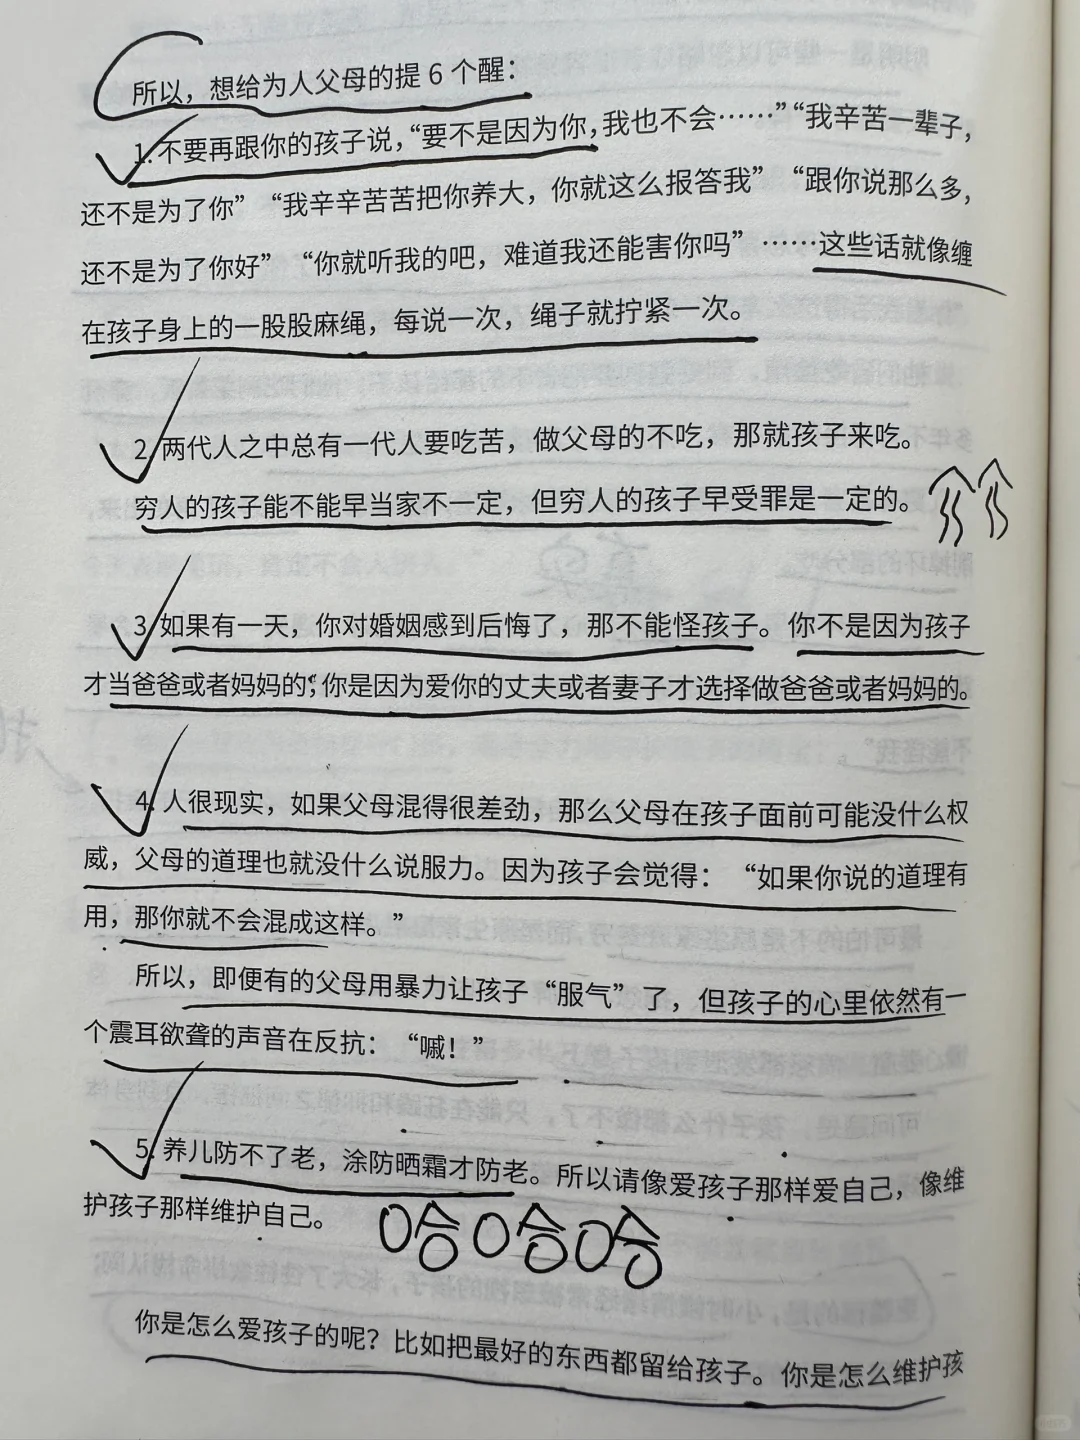 所以，想给为人父母的提 6 个醒：
1. 不要再跟你的孩子说，“要不是因为你，我也不会……”“我辛苦一辈子，
还不是为了你”“我辛辛苦苦把你养大，你就这么报答我”“跟你说那么多，
还不是为了你好”“你就听我的吧，难道我还能害你吗”……这些话就像缠
在孩子身上的一股股麻绳，每说一次，绳子就拧紧一次。
2. 两代人之中总有一代人要吃苦，做父母的不吃，那就孩子来吃。
穷人的孩子能不能早当家不一定，但穷人的孩子早受罪是一定的。
3. 如果有一天，你对婚姻感到后悔了，那不能怪孩子。你不是因为孩子
才当爸爸或者妈妈的；你是因为爱你的丈夫或者妻子才选择做爸爸或者妈妈的。
4. 人很现实，如果父母混得很差劲，那么父母在孩子面前可能没什么权
威，父母的道理也就没什么说服力。因为孩子会觉得：“如果你说的道理有
用，那你就不会混成这样。”
所以，即便有的父母用暴力让孩子“服气”了，但孩子的心里依然有一
个震耳欲聋的声音在反抗：“嘁！”
5. 养儿防不了老，涂防晒霜才防老。所以请像爱孩子那样爱自己，像维
护孩子那样维护自己。
哈哈哈
你是怎么爱孩子的呢？比如把最好的东西都留给孩子。你是怎么维护孩